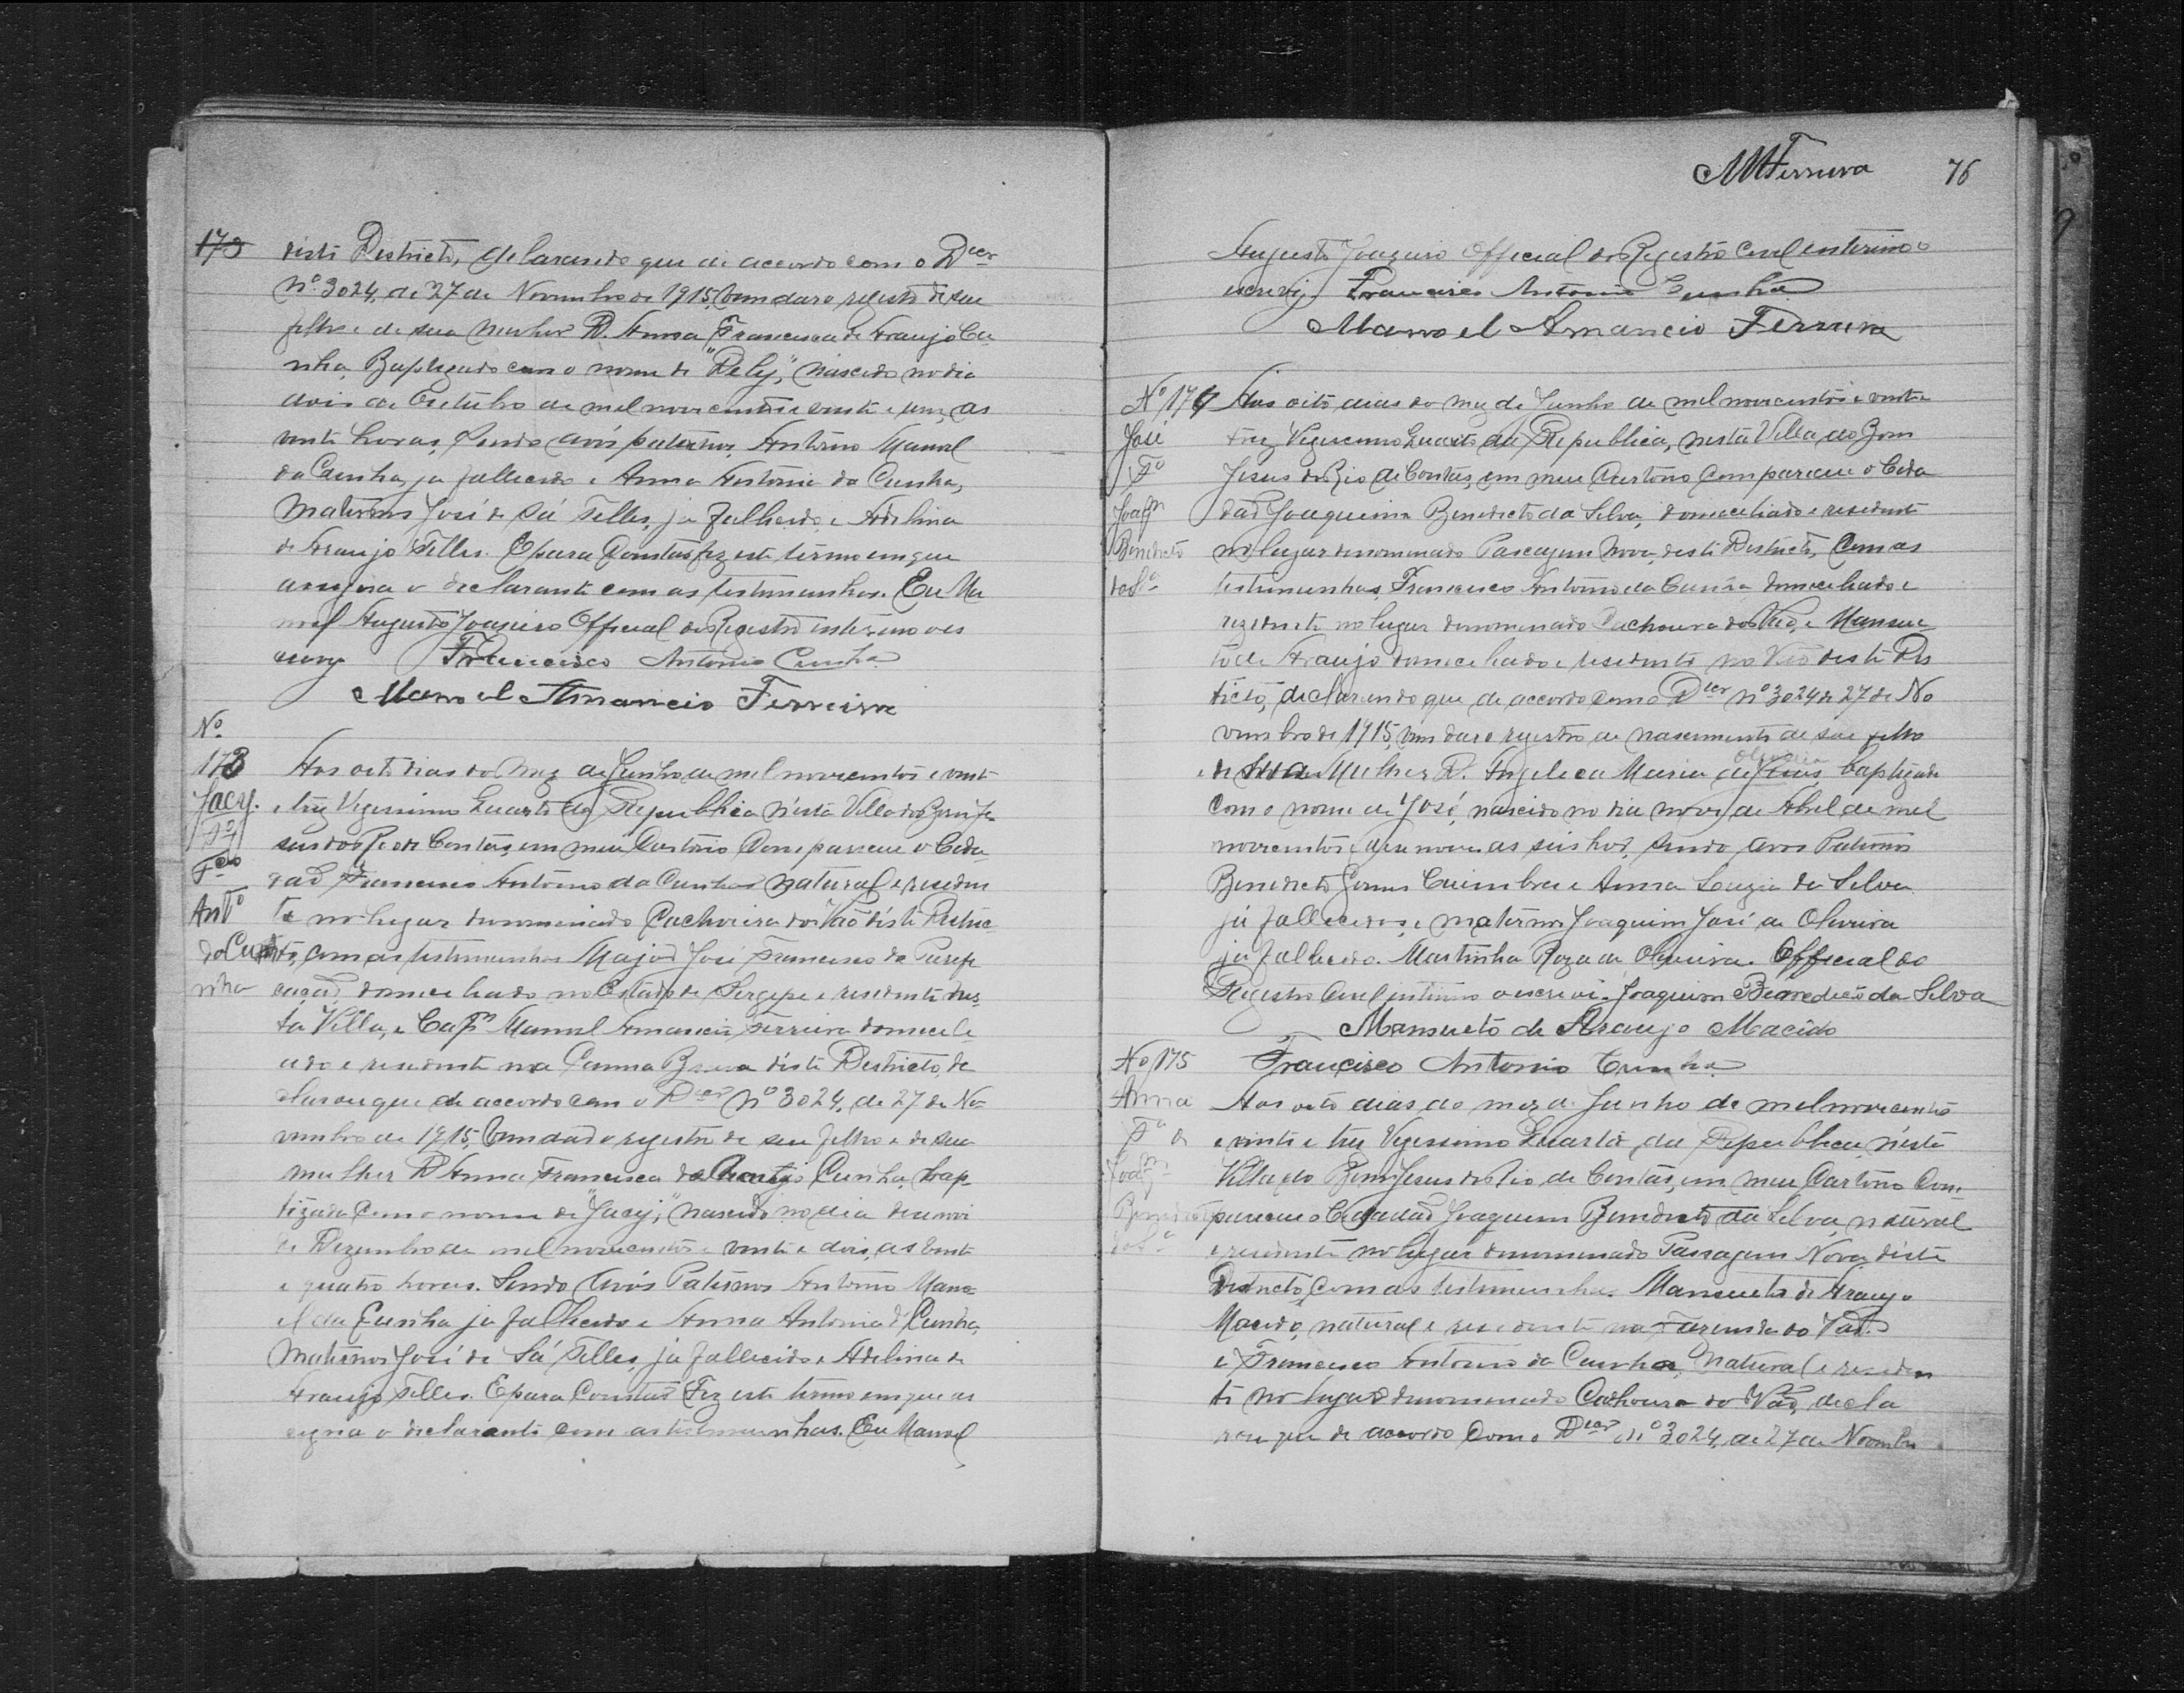 173
deste Districto, declarando que de accordo com o Decr
Nº 3024, de 27 de Novembro de 1915, vem dar o registro de seu
filho e de sua mulher D. Anna Francisca de Araujo Cu-
nha, Baptizado com o nome de "Dely", nascido no dia
dois de Outubro de mil novecentos e vinte e um, as
vinte horas, sendo avós paternos, Antonio Manoel
da Cunha, ja fallecido e Anna Antonia da Cunha,
Maternos José de Sá Telles, ja fallecido e Adelina
de Araujo Telles. E para constar fiz este termo em que
assigna o declarante com as testimunhas. Eu Ma
noel Augusto Joazeiro Official do Registro interino o es
crevy Francisco Antonio Cunha
Manoel Amancio Ferreira
Nº
173
Jacy.
Fº
Fco
Antº
da Cu
nha
Aos oito dias do mez de Junho de mil novecentos e vinte
e trez Vigessimo Quarto da Republica nésta Villa do Bom Je-
sus do Rio de Contas, em meu Cartorio Compareceu o Cida
dað Francisco Antonio da Cunha natural e residen
te no lugar denominado Cachoeira do Vaõ déste Distric-
to, com as testimunhas Major José Francisco da Purifi
caçaõ, domeceliado no Estado de Sergipe e residente nes
ta Villa, e Capm Manoel Amancio Ferreira domeceli-
ado e residente na Gamma Brava déste Districto, de
clarou que de accordo com o Decr Nº 3024, de 27 de No-
vembro de 1915, vem dar o registro de seu filho e de sua
mulher D Anna Francisca de Araujo Cunha, bap-
tizado com o nome de "Jacy", nascido no dia desenove
de Dezembro de mil novecentos e vinte e dois, as vinte
e quatro horas. Sendo Avós Paternos Antonio Mano-
el da Cunha ja fallecido e Anna Antonia d' Cunha,
Maternos José de Sá Telles, ja fallecido e Adelina de
Araujo Telles. E para Constar Fiz este termo em que as
signa o declarante com as testimunhas. Eu Manoel
MAFerreira 76
Augusto Joazeiro Official do Registro Cevel enterino o
escrevy Francisco Antonio Cunha
Manoel Amancio Ferreira
Nº 174
José
Fº
Joaqm
Benedicto
da Sª
Aos oito dias do mez de Junho de mil novecentos e vinte e
trez Vigescimo Quarto da Republica, nésta Villa do Bom
Jesus do Rio de Contas, em meu Cartorio Compareceu o Cida
daõ Joaquim Benedicto da Silva, domeceliado e residente
no lugar denominado Pascagem Nova, deste Districto, Com as
testimunhas Francisco Antonio da Cunha domeceliado e
rezidente no lugar denominado Cachoeira do Vaõ, e Mansue
to de Araujo domeceliado e residente no Vaõ déste Dis
tricto, declarando que de accordo com o Decr nº 3024 de 27 de No
vembro de 1915, vem dar o registro de nascimento de seu filho
e de sua Mulher D. Angelica Maria de Oliveira baptizado
com o nome de José, nascido no dia nove de Abril de mil
novecentos e desenove as seis hos, sendo Avos Paternos
Benedicto Gomes Coimbra e Anna Souzia da Silva
já fallecidos, e maternos Joaquim José de Oliveira
já fallecido. Martinha Roza de Oliveira. Official do
Registro Cevel interino o escrevi. Joaquim Benedicto da Silva
Mansueto de Araujo Macêdo
Francisco Antonio Cunha
Nº 175
Anna
Fª de
Joaqm
Benedicto
da Sª
Aos oito dias do mez de Junho de mil novecentos
e vinte e trez Vigessimo Quarto da Republica, nésta
Villa do Bom Jesus do Rio de Contas, em meu Cartorio Com-
pareceu o Cidadaõ Joaquim Benedicto da Silva, natural
e residente no lugar denominado Passagem Nova déste
Districto, com as testimunhas Mansueto de Araujo
Macedo, natural e residente na Fazenda do Vaõ
e Francisco Antonio da Cunha, Natural e residen
te no lugar denominado Cachoeira do Vaõ, decla
rou que de accordo Com o Decr Nº 3024, de 27 de Novembr